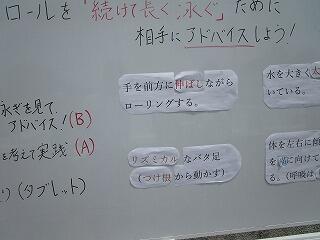 ロールを「続けて長く泳ぐ」ために
相手にアドバイスしよう!
手を前方に伸ばしながら
ローリングする。
水を大きく
いている。
泳ぎを見て
アドバイス!(B)
を考えて実践(A)
(タブレット)
リズミカルなバタ足
(つけ根から動かす)
体を左右に傾
を横に向けて
る。(呼吸は